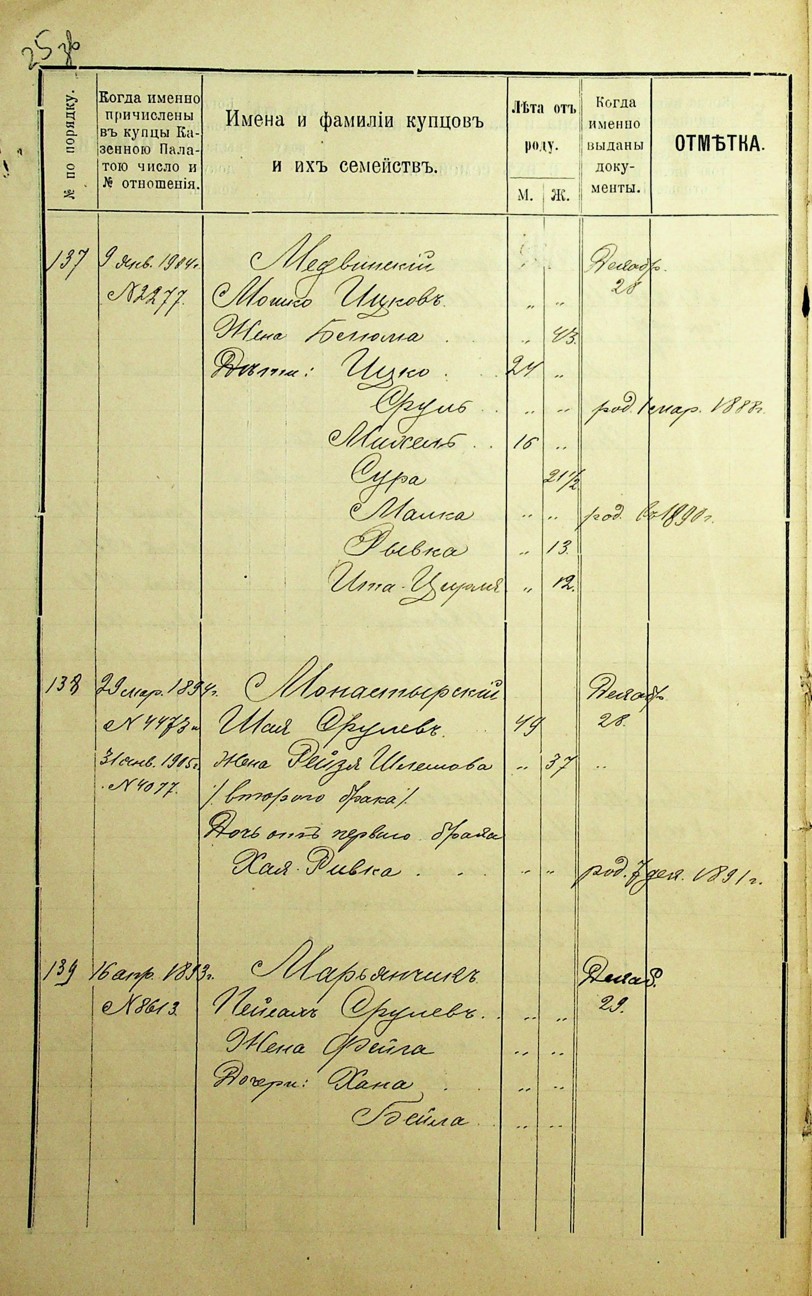 25
№ по порядку.
Когда именно
причислены
въ купцы Ка-
зенною Пала-
тою число и
№ отношенія.
Имена и фамиліи купцовъ
и ихъ семействъ.
Лѣта отъ
роду.
М. Ж.
Когда
именно
выданы
доку-
менты.
ОТМѢТКА.
137 9 янв. 1904г. Медвинскій Декабр.
N2277. Мошко Ицковъ. „ „ 28
Жена Бенюма „ 43.
Дѣти: Ицко 24 „
Сруль „ „ род. 1 мар. 1888г.
Михель 16 „
Сура 21½
Малка „ „ род. въ 1890г.
Рывка „ 13.
Ита-Цирля „ 12.
138 29 мар. 1894г. Монастырскій Декабр.
N4473 и Шая Срулевъ 49 28.
31 янв. 1905г. Жена Рейзя Шлемова „ 37 „
N4077. /. второго брака /.
Дочь отъ перваго брака
Хая-Ривка „ „ род. 7 дек. 1891г.
139 16 апр. 1893г. Марьянчикъ Декаб.
N8613. Пейсахъ Срулевъ „ „ 29.
Жена Фейга „ „
Дочери: Хана „ „
Бейла „ „